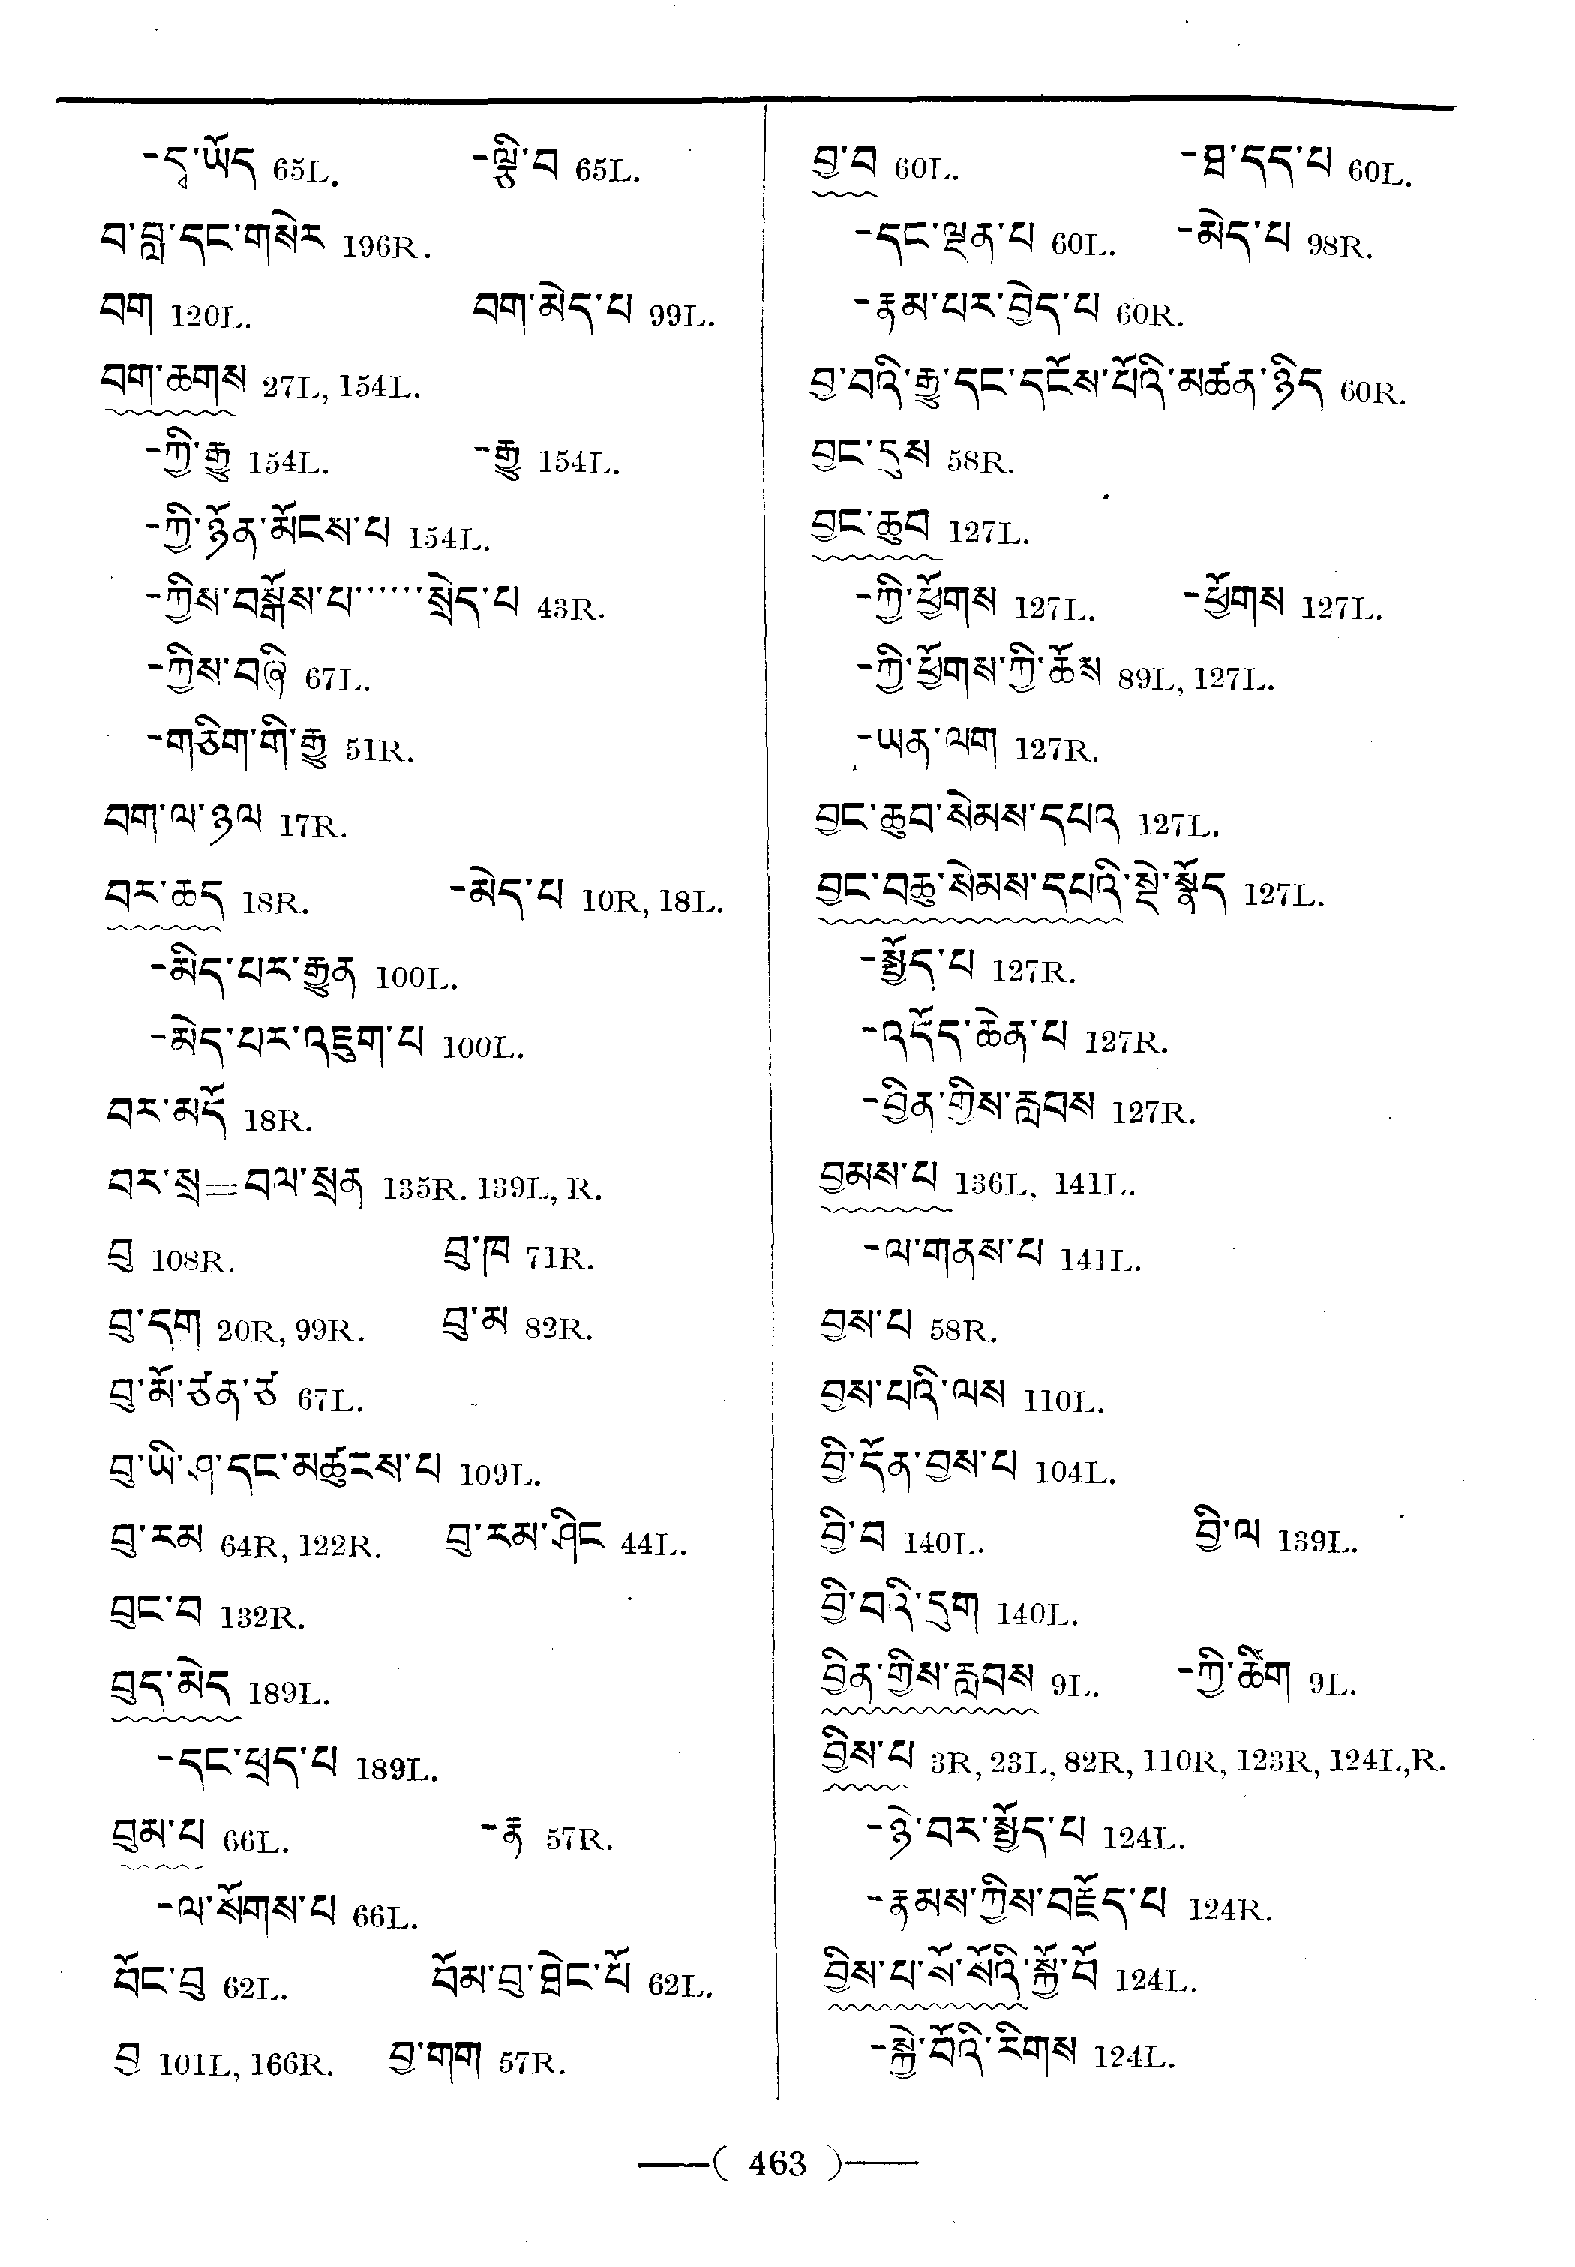 -དྭ་ཡོད 65L. -ལྕི་བ 65L.
བ་བླ་དང་གསེར 196R.
བག 120L. བག་མེད་པ 99L.
བག་ཆགས 27L, 154L.
-ཀྱི་རྒྱུ 154L. -རྒྱུ 154L.
-ཀྱི་ཉོན་མོངས་པ 154L.
-ཀྱིས་བསྒོས་པ་་་་་་སྲེད་པ 43R.
-ཀྱིས་བཞི 67L.
-གཅིག་གི་རྒྱུ 51R.
བག་ལ་ཉལ 17R.
བར་ཆད 18R. -མེད་པ 10R, 18L.
-མེད་པར་རྒྱུན 100L.
-མེད་པར་འཇུག་པ 100L.
བར་མདོ 18R.
བར་སྲ=བལ་སྲན 135R. 139L, R.
བྲུ 108R. བྲུ་ཁ 71R.
བྲུ་དག 20R, 99R. བྲུ་མ 82R.
བྲུ་མོ་ཙན་ཙ 67L.
བྲུ་ཡི་ཤ་དང་མཚུངས་པ 109L.
བྲུ་རམ 64R, 122R. བྲུ་རམ་ཤིང 44L.
བྲུང་བ 132R.
བུད་མེད 189L.
-དང་ཕྲད་པ 189L.
བུམ་པ 66L. -རྟ 57R.
-ལ་སོགས་པ 66L.
བོང་བུ 62L. བོམ་བུ་ཐེང་པོ 62L.
བྱ 101L, 166R. བྱ་གག 57R.
བྱ་བ 60L. -ཐ་དད་པ 60L.
-དང་ལྡན་པ 60L. -མེད་པ 98R.
-རྣམ་པར་བྱེད་པ 60R.
བྱ་བའི་རྒྱུ་དང་དངོས་པོའི་མཚན་ཉིད 60R.
བྱང་དུས 58R.
བྱང་ཆུབ 127L.
-ཀྱི་ཕྱོགས 127L. -ཕྱོགས 127L.
-ཀྱི་ཕྱོགས་ཀྱི་ཆོས 89L, 127L.
-ཡན་ལག 127R.
བྱང་ཆུབ་སེམས་དཔའ 127L.
བྱང་བཆུ་སེམས་དཔའི་སྡེ་སྣོད 127L.
-སྤྱོད་པ 127R.
-འདོད་ཆེན་པ 127R.
-བྱིན་གྱིས་རླབས 127R.
བྱམས་པ 136L, 141L.
-ལ་གནས་པ 141L.
བྱས་པ 58R.
བྱས་པའི་ལས 110L.
བྱི་དོན་བྱས་པ 104L.
བྱི་བ 140L. བྱི་ལ 139L.
བྱི་བའི་དུག 140L.
བྱིན་གྱིས་རླབས 9L. -ཀྱི་ཚིག 9L.
བྱིས་པ 3R, 23L, 82R, 110R, 123R, 124L,R.
-ཉེ་བར་སྤྱོད་པ 124L.
-རྣམས་ཀྱིས་བརྗོད་པ 124R.
བྱིས་པ་སོ་སོའི་སྐྱོ་བོ 124L.
-སྐྱེ་བོའི་རིགས 124L.
—( 463 )—